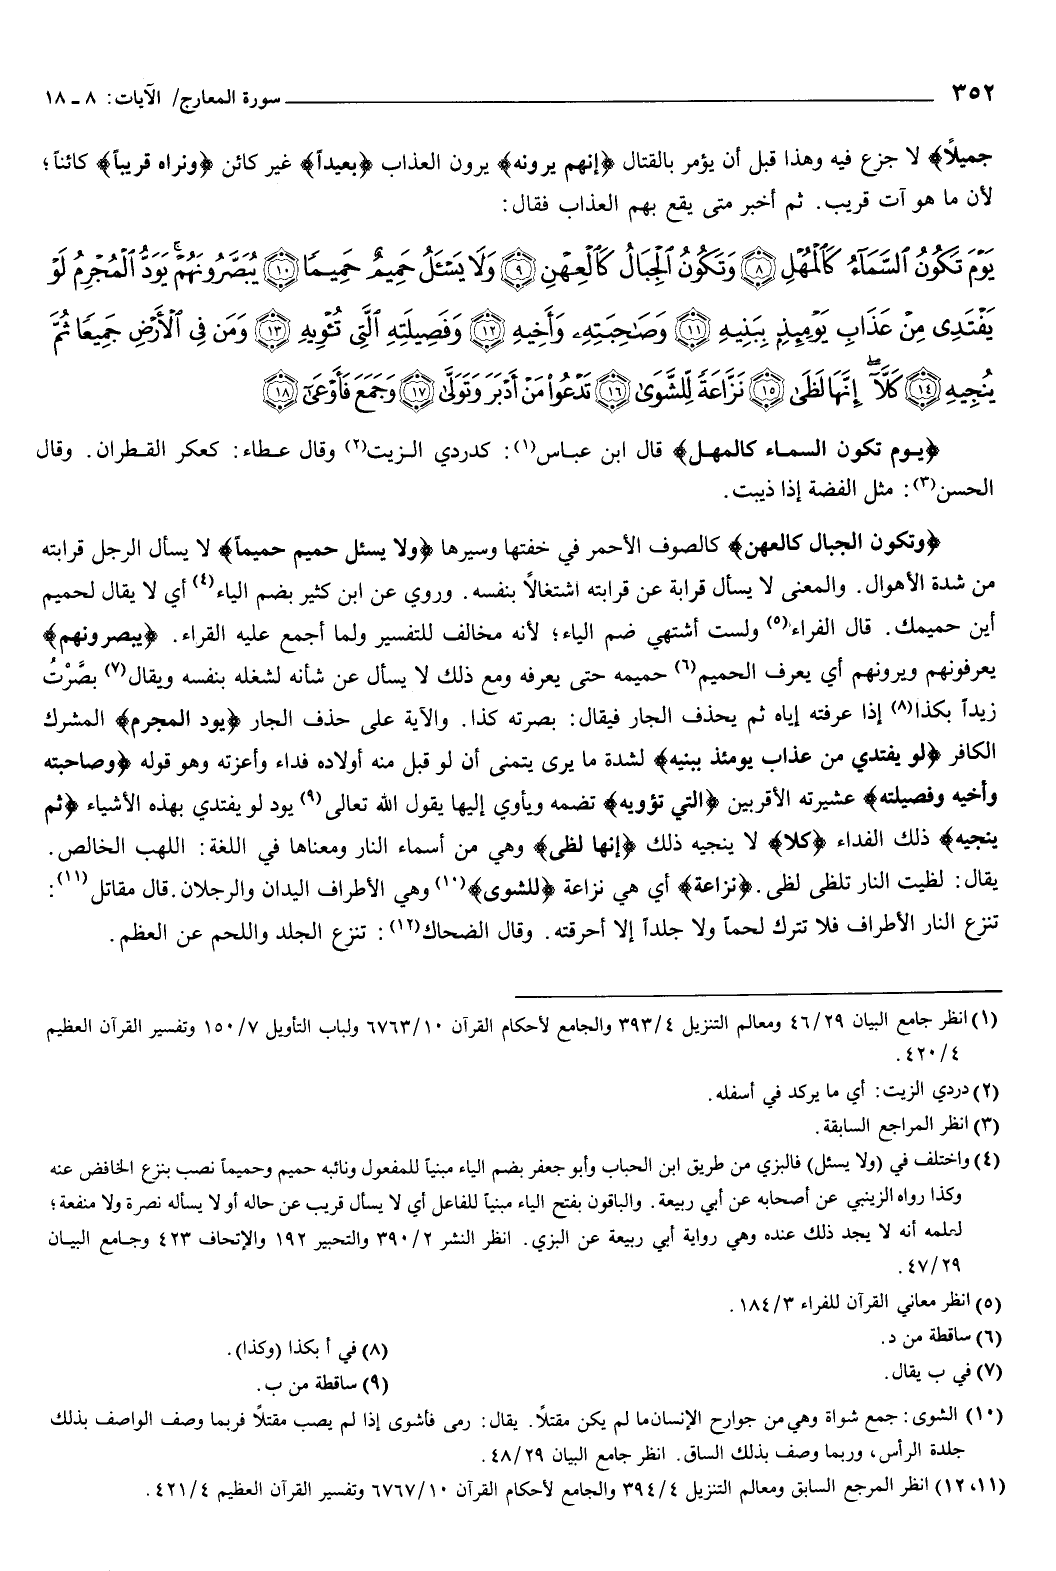 ٣٥٢ سورة المعارج/ الآيات: ٨ ـ ١٨
جميلاً﴾ لا جزع فيه وهذا قبل أن يؤمر بالقتال ﴿إنهم يرونه﴾ يرون العذاب ﴿بعيداً﴾ غير كائن ﴿ونراه قريباً﴾ كائناً؛
لأن ما هو آت قريب. ثم أخبر متى يقع بهم العذاب فقال:
يَوْمَ تَكُونُ ٱلسَّمَآءُ كَٱلْمُهْلِ ﴿٨﴾ وَتَكُونُ ٱلْجِبَالُ كَٱلْعِهْنِ ﴿٩﴾ وَلَا يَسْـَٔلُ حَمِيمٌ حَمِيمًا ﴿١٠﴾ يُبَصَّرُونَهُمْ ۚ يَوَدُّ ٱلْمُجْرِمُ لَوْ
يَفْتَدِى مِنْ عَذَابِ يَوْمِئِذٍۭ بِبَنِيهِ ﴿١١﴾ وَصَـٰحِبَتِهِۦ وَأَخِيهِ ﴿١٢﴾ وَفَصِيلَتِهِ ٱلَّتِى تُـْٔوِيهِ ﴿١٣﴾ وَمَن فِى ٱلْأَرْضِ جَمِيعًا ثُمَّ
يُنجِيهِ ﴿١٤﴾ كَلَّآ ۖ إِنَّهَا لَظَىٰ ﴿١٥﴾ نَزَّاعَةً لِّلشَّوَىٰ ﴿١٦﴾ تَدْعُوا۟ مَنْ أَدْبَرَ وَتَوَلَّىٰ ﴿١٧﴾ وَجَمَعَ فَأَوْعَىٰٓ ﴿١٨﴾
﴿يـوم تكون السمـاء كالمهـل﴾ قال ابن عبـاس(١): كدردي الـزيت(٢) وقال عـطاء: كعكر القـطران. وقال
الحسن(٣): مثل الفضة إذا ذيبت.
﴿وتكون الجبال كالعهن﴾ كالصوف الأحمر في خفتها وسيرها ﴿ولا يسئل حميم حميماً﴾ لا يسأل الرجل قرابته
من شدة الأهوال. والمعنى لا يسأل قرابة عن قرابته اشتغالاً بنفسه. وروي عن ابن كثير بضم الياء(٤) أي لا يقال لحميم
أين حميمك. قال الفراء(٥) ولست أشتهي ضم الياء؛ لأنه مخالف للتفسير ولما أجمع عليه القراء. ﴿يبصرونهم﴾
يعرفونهم ويرونهم أي يعرف الحميم(٦) حميمه حتى يعرفه ومع ذلك لا يسأل عن شأنه لشغله بنفسه ويقال(٧) بصَّرْتُ
زيداً بكذا(٨) إذا عرفته إياه ثم يحذف الجار فيقال: بصرته كذا. والآية على حذف الجار ﴿يود المجرم﴾ المشرك
الكافر ﴿لو يفتدي من عذاب يومئذ ببنيه﴾ لشدة ما يرى يتمنى أن لو قبل منه أولاده فداء وأعزته وهو قوله ﴿وصاحبته
وأخيه وفصيلته﴾ عشيرته الأقربين ﴿التي تؤويه﴾ تضمه ويأوي إليها يقول الله تعالى(٩) يود لو يفتدي بهذه الأشياء ﴿ثم
ينجيه﴾ ذلك الفداء ﴿كلا﴾ لا ينجيه ذلك ﴿إنها لظى﴾ وهي من أسماء النار ومعناها في اللغة: اللهب الخالص.
يقال: لظيت النار تلظى لظى. ﴿نزاعة﴾ أي هي نزاعة ﴿للشوى﴾(١٠) وهي الأطراف اليدان والرجلان. قال مقاتل(١١):
تنزع النار الأطراف فلا تترك لحماً ولا جلداً إلا أحرقته. وقال الضحاك(١٢): تنزع الجلد واللحم عن العظم.
(١) انظر جامع البيان ٤٦/٢٩ ومعالم التنزيل ٣٩٣/٤ والجامع لأحكام القرآن ٦٧٦٣/١٠ ولباب التأويل ١٥٠/٧ وتفسير القرآن العظيم
٤٢٠/٤.
(٢) دردي الزيت: أي ما يركد في أسفله.
(٣) انظر المراجع السابقة.
(٤) واختلف في (ولا يسئل) فالبزي من طريق ابن الحباب وأبو جعفر بضم الياء مبنياً للمفعول ونائبه حميم وحميماً نصب بنزع الخافض عنه
وكذا رواه الزينبي عن أصحابه عن أبي ربيعة. والباقون بفتح الياء مبنياً للفاعل أي لا يسأل قريب عن حاله أو لا يسأله نصرة ولا منفعة؛
لعلمه أنه لا يجد ذلك عنده وهي رواية أبي ربيعة عن البزي. انظر النشر ٣٩٠/٢ والتحبير ١٩٢ والإتحاف ٤٢٣ وجـامع البيـان
٤٧/٢٩.
(٥) انظر معاني القرآن للفراء ١٨٤/٣.
(٦) ساقطة من د.
(٧) في ب يقال.
(٨) في أ بكذا (وكذا).
(٩) ساقطة من ب.
(١٠) الشوى: جمع شواة وهي من جوارح الإنسان ما لم يكن مقتلاً. يقال: رمى فأشوى إذا لم يصب مقتلاً فربما وصف الواصف بذلك
جلدة الرأس، وربما وصف بذلك الساق. انظر جامع البيان ٤٨/٢٩.
(١١، ١٢) انظر المرجع السابق ومعالم التنزيل ٣٩٤/٤ والجامع لأحكام القرآن ٦٧٦٧/١٠ وتفسير القرآن العظيم ٤٢١/٤.